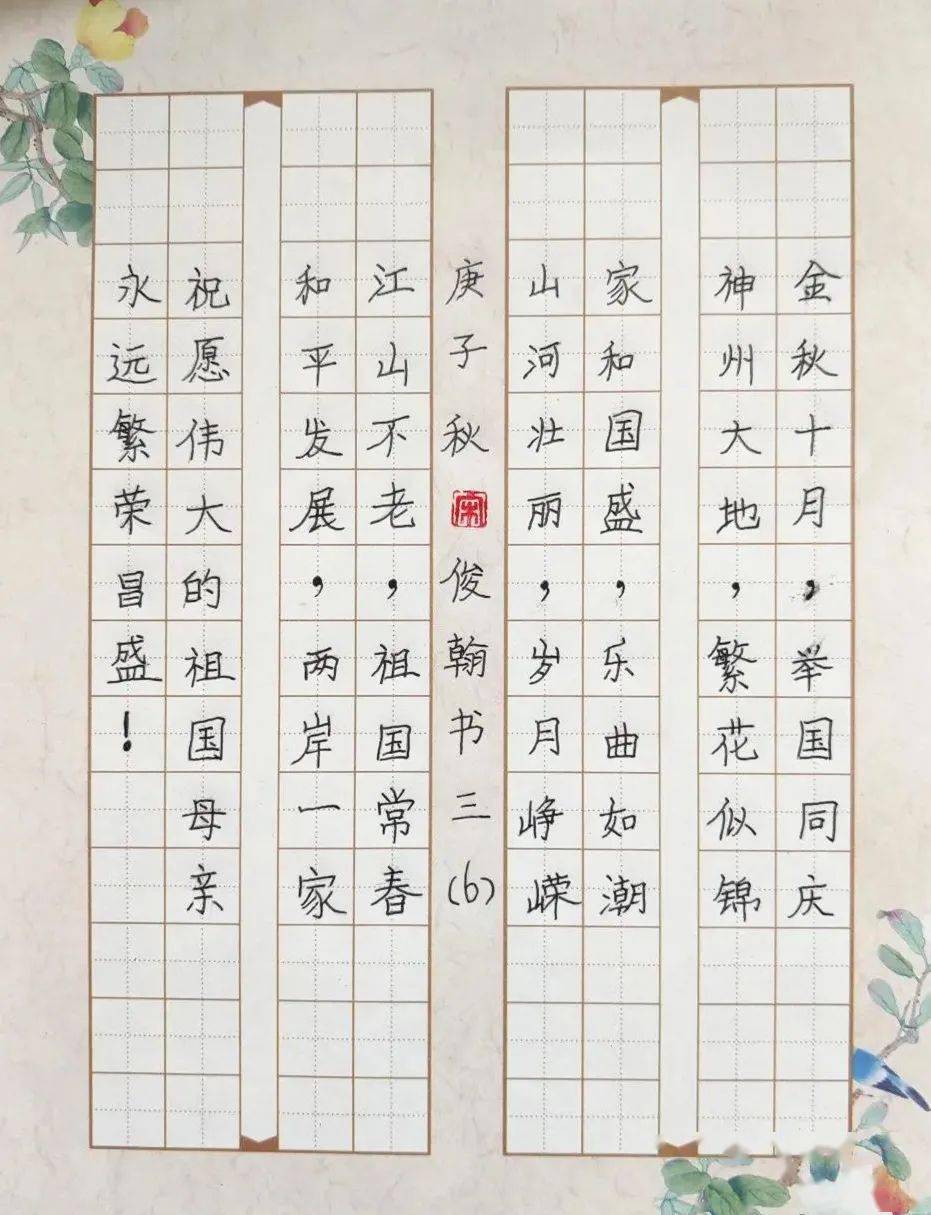 金秋十月，举国同庆
神州大地，繁花似锦
家和国盛，乐曲如潮
山河壮丽，岁月峥嵘
庚子秋 宋 俊翰书三(6)
江山不老，祖国常春
和平发展，两岸一家
祝愿伟大的祖国母亲
永远繁荣昌盛！